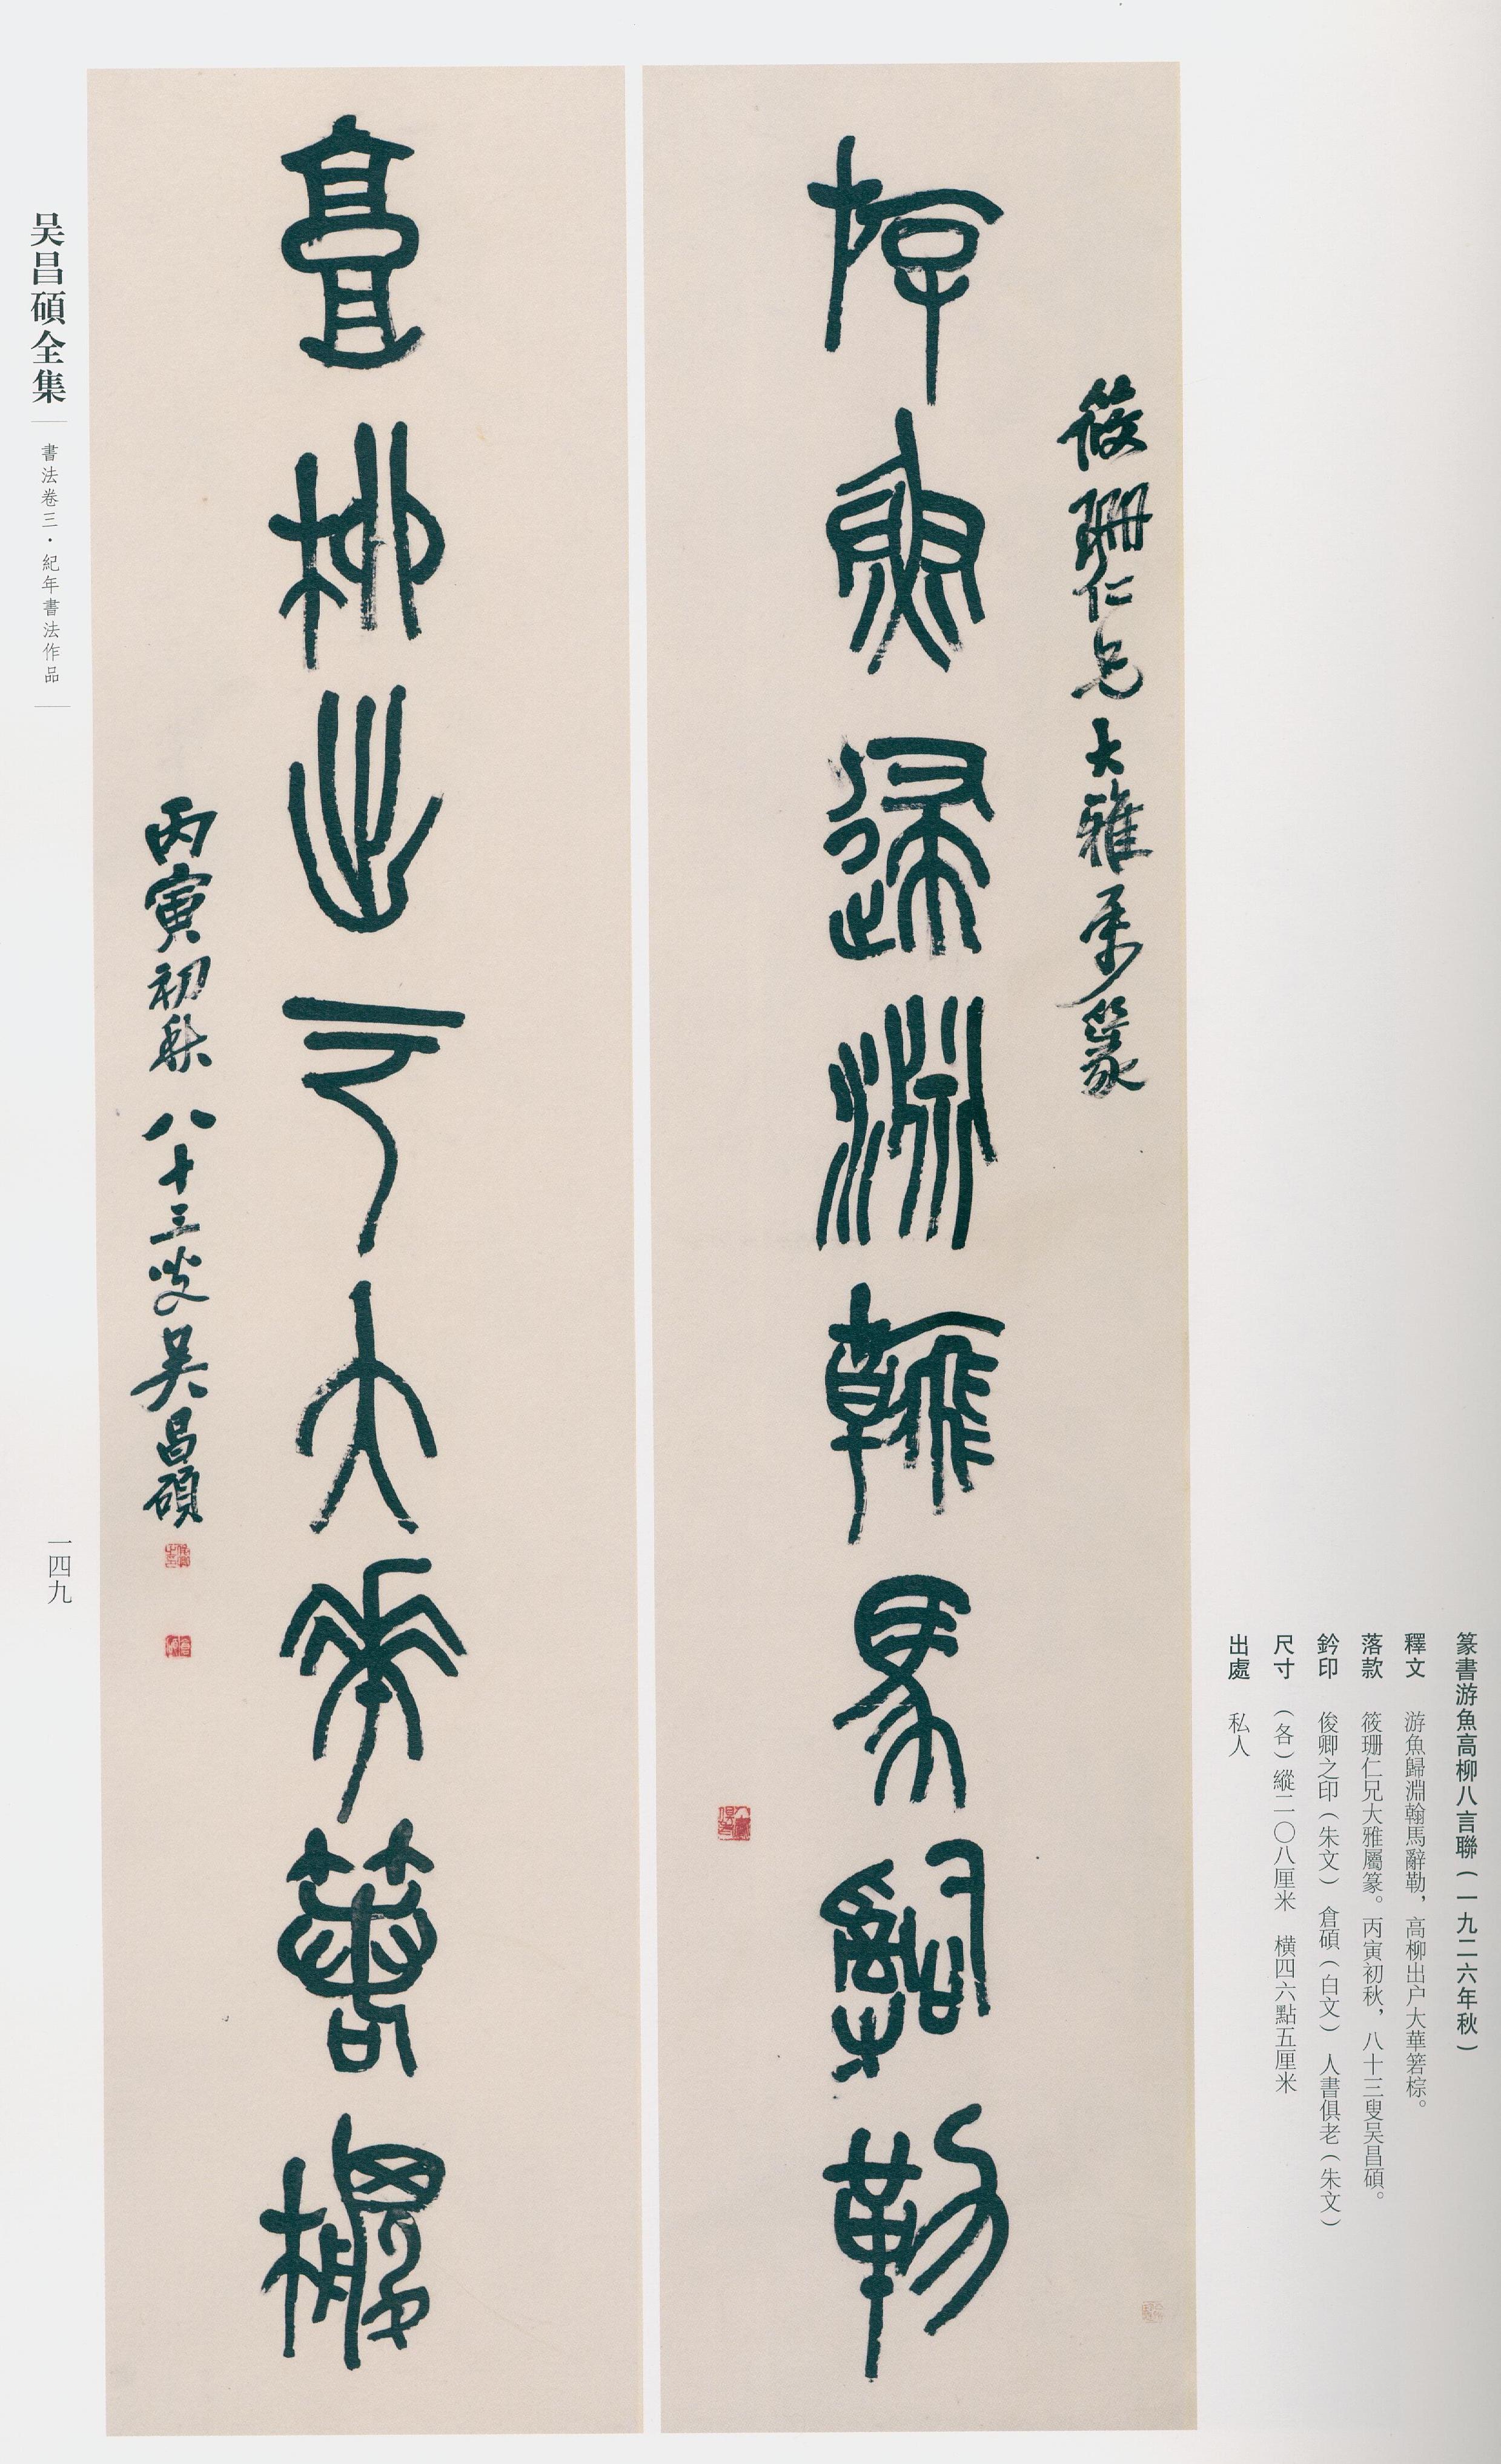 篆書游魚高柳八言聯（一九二六年秋）
釋文　游魚歸淵翰馬辭勒，高柳出户大華箬棕。
落款　筱珊仁兄大雅屬篆。丙寅初秋，八十三叟吴昌碩。
鈐印　俊卿之印（朱文）　倉碩（白文）　人書俱老（朱文）
尺寸　（各）縱二〇八厘米　横四六點五厘米
出處　私人
筱珊仁兄大雅屬篆
游魚歸淵翰馬辭勒
人書俱老
高柳出户大華箬棕
丙寅初秋八十三叟吴昌碩
俊卿之印
倉碩
吴昌碩全集
書法卷三・紀年書法作品
一四九